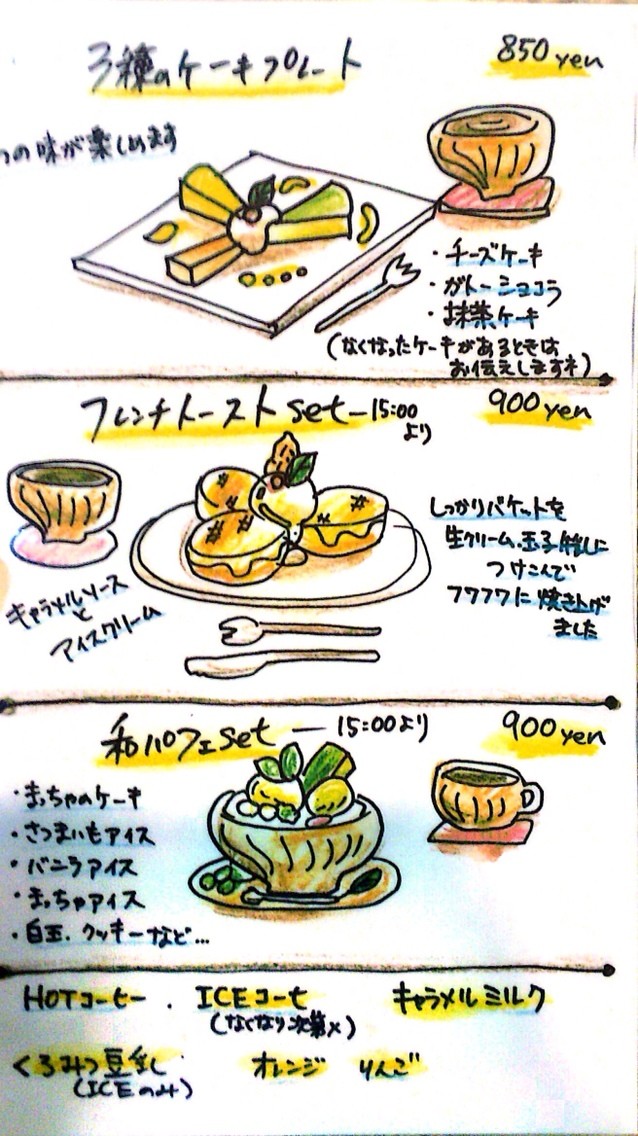 3種のケーキプレート 850 yen
つの味が楽しめます
・チーズケーキ
・ガトーショコラ
・お抹茶ケーキ
(なくなったケーキがあるときは
お伝えしますネ)
フレンチトースト set― 15:00 より 900 yen
しっかりバケットを
生クリーム、玉子
つけこんで
フワフワに焼き上げ
ました
キャラメルソース
と
アイスクリーム
和パフェ set ― 15:00より 900 yen
・まっちゃのケーキ
・さつまいもアイス
・バニラアイス
・まっちゃアイス
・白玉.クッキーなど...
HOTコーヒー . ICEコーヒ キャラメルミルク
(なくなり次第×)
くろみつ豆乳 オレンジ りんご
(ICEのみ)